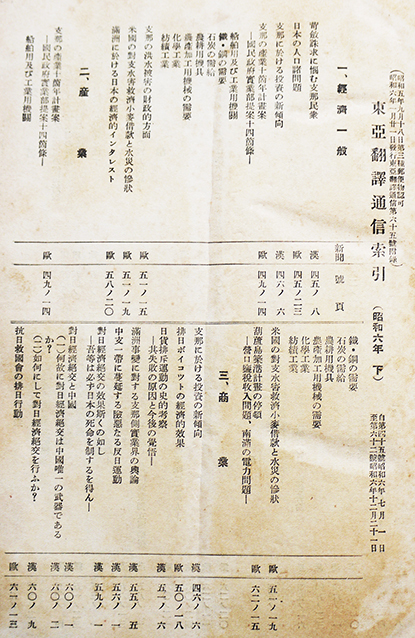 昭和五年九月十八日第三種郵便物認可
東亞翻譯通信索引
(昭和六年 下)
自第四十五號昭和六年七月一日
至第六十二號昭和六年十二月二十一日
一、經濟一般
新聞 號 頁
苛斂誅求に惱む支那民衆 漢 四五ノ八
日本の人口諸問題 歐 四五ノ二三
支那に於ける投資の新傾向 漢 四六ノ六
支那の產業十箇年計畫案 歐 四九ノ一四
―國民政府實業部提案十四箇條―
鐵・鋼の需要
石炭の需給
農耕用機具
農產加工用機械の需要
化學工業
紡績工業
船舶用及び工業用機關
支那の洪水被害の財政的方面 歐 五一ノ一五
米國の對支水害救濟小麥借款と水災の慘狀 歐 五一ノ一九
滿洲に於ける日本の經濟的インタレスト 歐 五八ノ二〇
二、產業
支那の產業十箇年計畫案 歐 四九ノ一四
―國民政府實業部提案十四箇條―
船舶用及び工業用機關
鐵・鋼の需要
石炭の需給
農耕用機具
農產加工用機械の需要
化學工業
紡績工業
米國の對支水害救濟小麥借款と水災の慘狀 歐 五一ノ一九
葫蘆島築港計畫の停頓 歐 六二ノ一五
―營口鹽稅收入問題、南滿の電力問題―
三、商業
支那に於ける投資の新傾向 漢 四六ノ六
排日ボイコツトの經濟的效果 歐 五〇ノ一八
日貨排斥運動の史的考察 漢 五一ノ六
―其失敗の原因と今後の覺悟―
滿洲事變に對する支那側實業界の輿論 漢 五五ノ五
中支一帶に蔓延する險惡たる反日運動 漢 五六ノ一
對日經濟絕交の效果斯くの如し 漢 五九ノ一
―吾等は必ず日本の死命を制するを得ん―
對日經濟絕交と中國 漢 六〇ノ一
(一)何故に對日經濟絕交は中國唯一の武器であるか? 漢 六〇ノ二
(二)如何にして對日經濟絕交を行ふか? 漢 六〇ノ九
抗日救國會の排日行動 歐 六一ノ一三